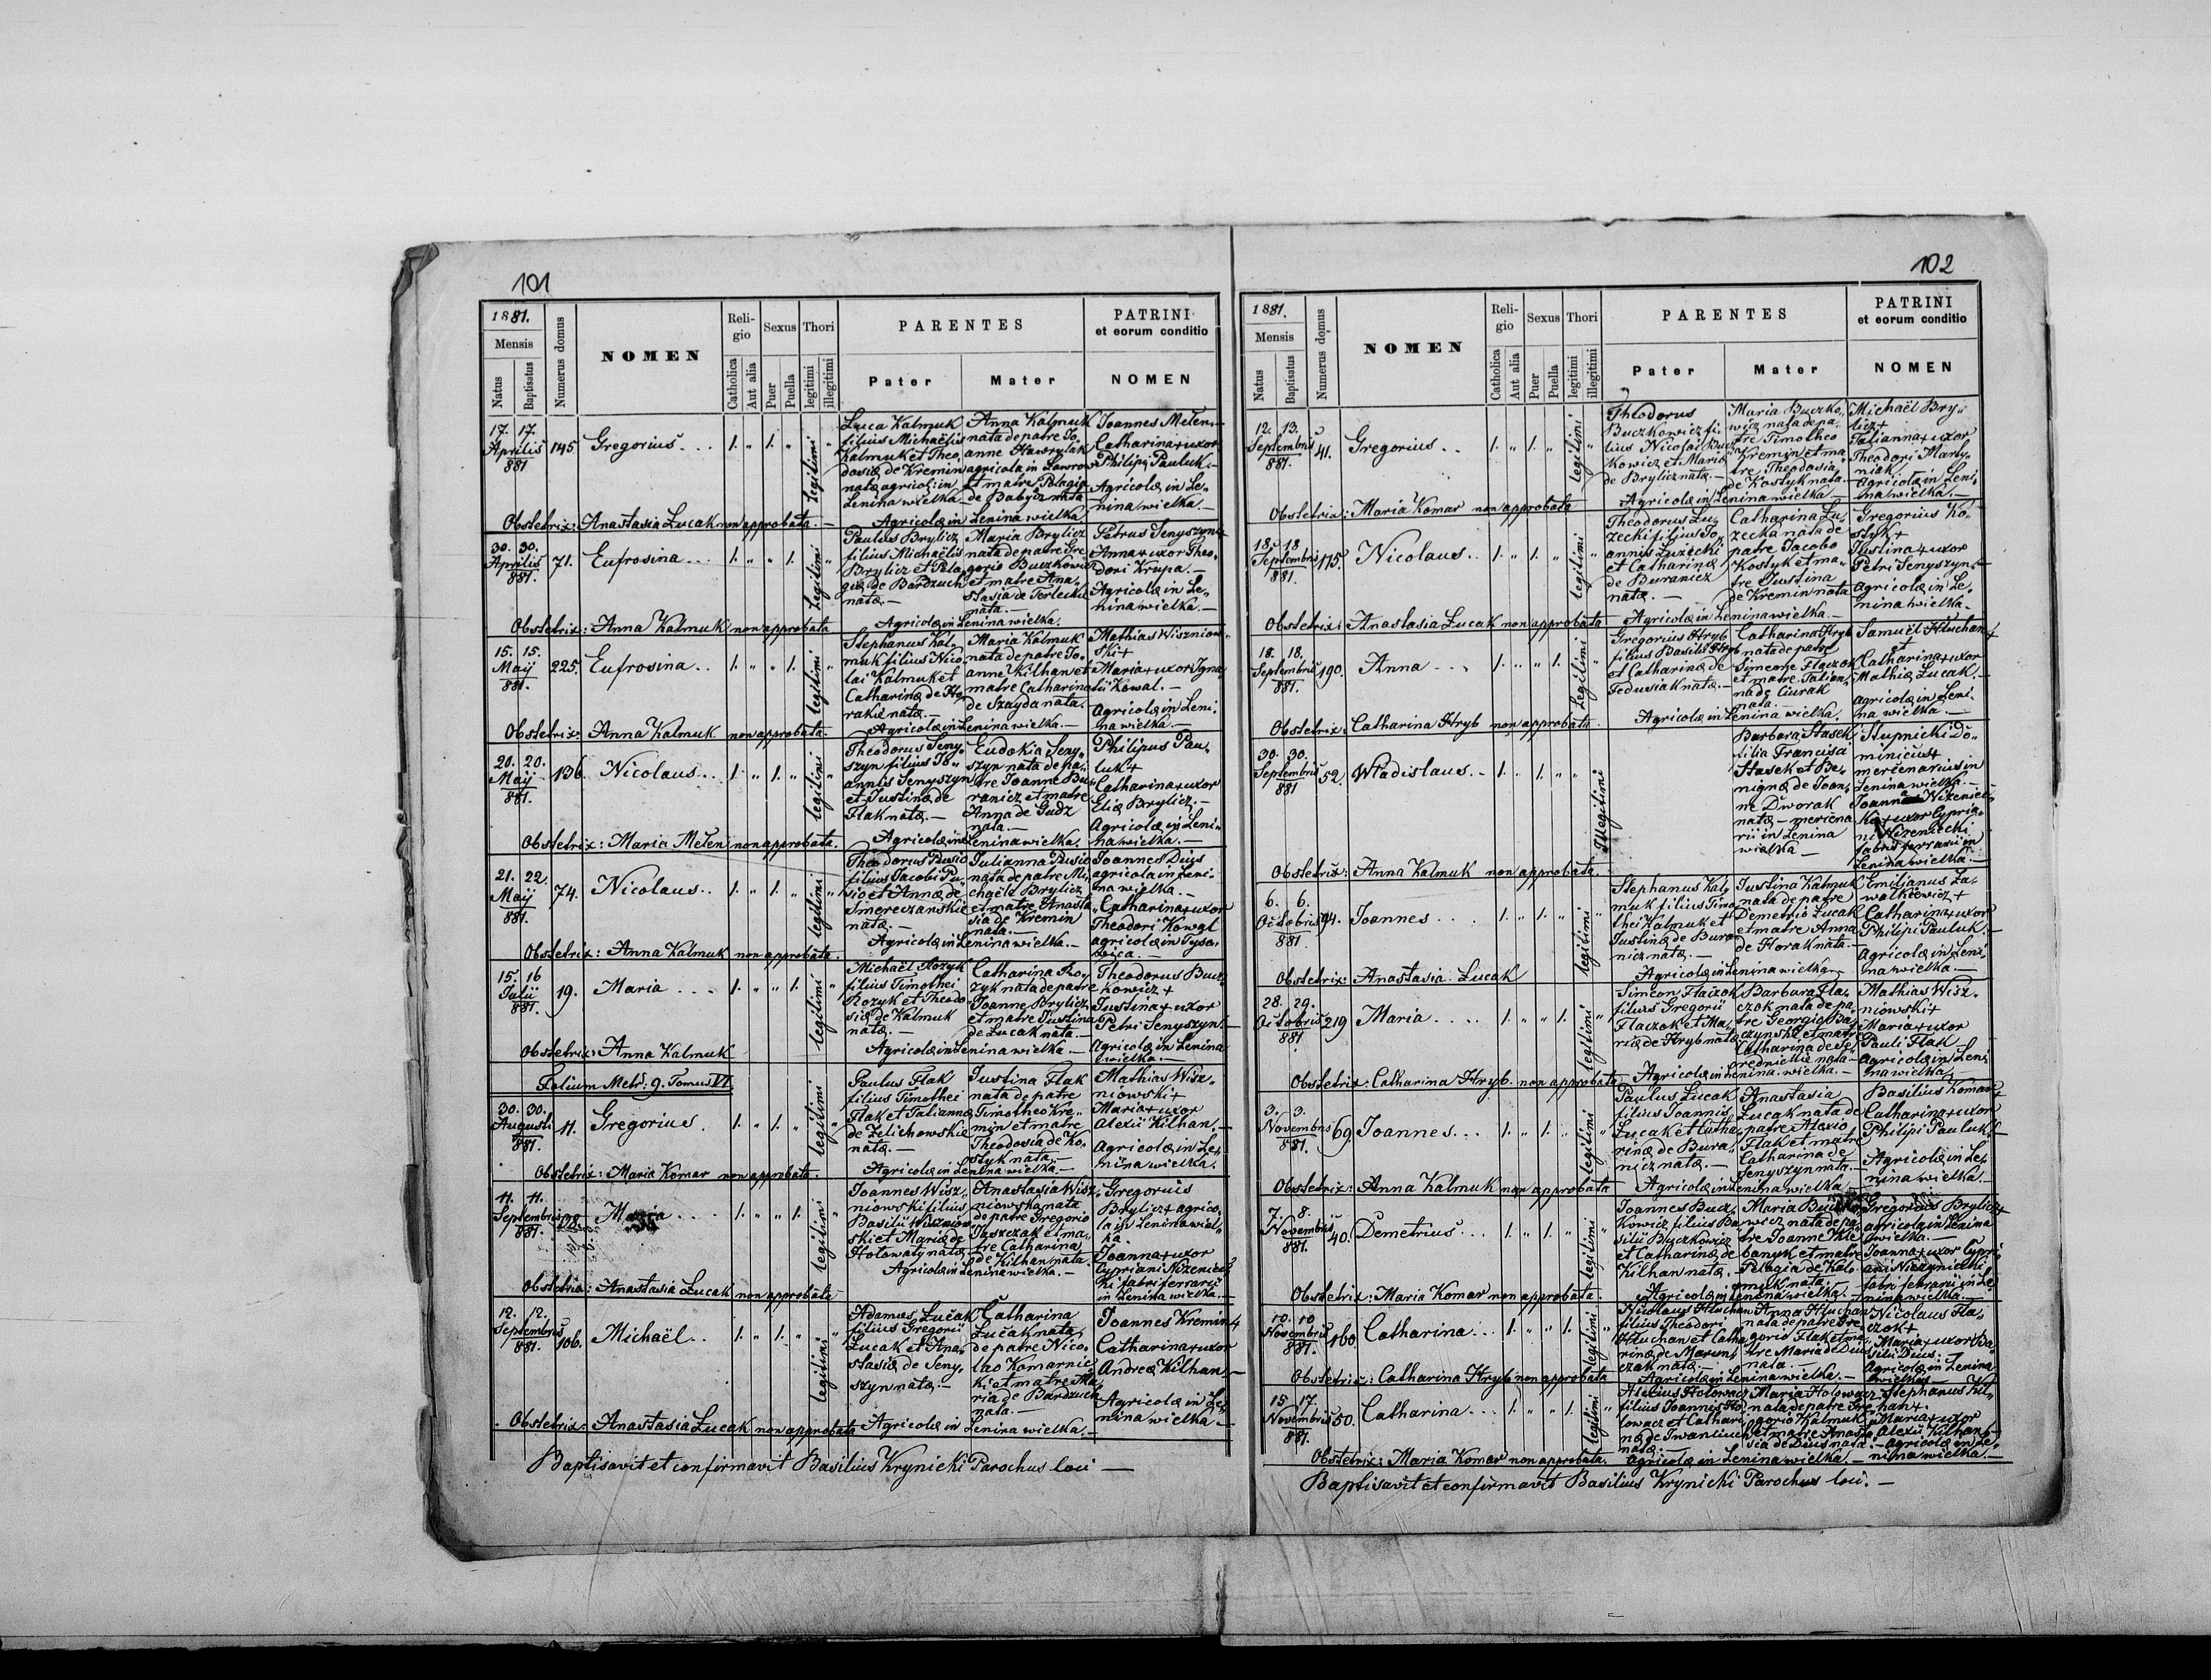 101
1881.
Mensis
Natus
Baptisatus
Numerus domus
NOMEN
Reli-
gio
Catholica
Aut alia
Sexus
Puer
Puella
Thori
legitimi
illegitimi
PARENTES
Pater
Mater
PATRINI
et eorum conditio
NOMEN
17. 17.
Aprilis
881
145
Gregorius
1. " 1. " legitimi "
Luca Kalmuk
filius Michaëlis
Kalmuk et Theo,
dosiæ de Kremin
natæ agricol: in
Lenina wielka
Anna Kalmuk
nata de patre Jo,
anne Hawrylak
agricola in Lawrow
et matre Pelagia
de Babycz nata
Joannes Melen
Catharina + uxor
Philipi Pauluk.
Agricolæ in Le,
nina wielka.
Obstetrix: Anastasia Łucak non approbata. Agricolæ in Lenina wielka.
30. 30.
Aprilis
881.
71.
Eufrosina
1. " " 1. legitimi "
Paulus Brylicz
filius Michaëlis
Brylicz et Pela,
giæ de Bardzuch
natæ.
Maria Brylicz
nata de patre Gre,
gorio Buczkowicz
et matre Ana,
stasia de Terlecki
nata.
Petrus Senyszyn +
Anna + uxor Theo,
dori Krupa.
Agricolæ in Le,
nina wielka.
Obstetrix: Anna Kalmuk non approbata Agricolæ in Lenina wielka.
15. 15.
Maij
881.
225.
Eufrosina
1. " " 1. legitimi "
Stephanus Kal,
muk filius Nico,
lai Kalmuk et
Catharinæ de
natæ.
Maria Kalmuk
nata de patre Jo,
anne Kilhan et
matre Catharina
de Szayda nata.
Mathias Wiszniow,
ski +
Maria + uxor Igna,
tii Kowal.
Agricolæ in Leni,
na wielka.
Obstetrix: Anna Kalmuk non approbata. Agricolæ in Lenina wielka.
20. 20.
Maij
881.
136.
Nicolaus
1. " 1. " legitimi "
Theodorus Seny,
szyn filius Jo,
annis Senyszyn
et Justinæ de
Flak natæ.
Eudokia Seny,
szyn nata de pa,
tre Joanne Bu,
ranicz et matre
Anna de Gudz
nata.
Philipus Pau,
luk +
Catharina + uxor
Eliæ Brylicz.
Agricolæ in Leni,
na wielka.
Obstetrix: Maria Melen non approbata. Agricolæ in Lenina wielka.
21. 22
Maij
881.
74.
Nicolaus
1. " 1. " legitimi "
Theodorus Pusio
filius Jacobi Pu,
sio et Annæ de
Smereczanskie
natæ.
Julianna Pusio
nata de patre Mi,
chaële Brylicz
et matre Anasta,
sia de Kremin
nata.
Joannes Dius
agricola in Leni,
na wielka.
Catharina + uxor
Theodori Kowal
agricolæ in Tyso,
wica.
Obstetrix: Anna Kalmuk non approbata. Agricolæ in Lenina wielka.
15. 16
Julii
881.
19.
Maria
1. " " 1. legitimi "
Michaël Rozyk
filius Timothei
Rozyk et Theodo,
siæ de Kalmuk
natæ.
Catharina Ro,
zyk nata de patre
Joanne Brylicz
et matre Justina
de Łucak nata.
Theodorus Bucz,
kowicz +
Justina + uxor
Petri Senyszyn.
Agricolæ in Lenina
wielka.
Obstetrix: Anna Kalmuk Agricolæ in Lenina wielka.
Folium Metr: 9. Tomus VI.
30. 30.
Augusti
881.
11.
Gregorius
1. " 1. " legitimi "
Paulus Flak
filius Timothei
Flak et Taliannæ
de Zelichowskie
natæ.
Justina Flak
nata de patre
Timotheo Kre,
min et matre
Theodosia de Ko,
styk nata.
Mathias Wisz,
niowski +
Maria + uxor
Alexii Kilhan.
Agricolæ in Le,
nina wielka.
Obstetrix: Maria Komar non approbata. Agricolæ in Lenina wielka.
11. 11.
Septembris
881.
Maria
1. " " 1. legitimi "
Joannes Wisz,
niowski filius
Basilii Wiszniow,
ski et Mariæ de
Hołowaty natæ
Anastasia Wisz,
niowska nata
de patre Gregorio
et ma,
tre Catharina
de Kilhan nata.
Gregorius
Brylicz + agrico,
la in Lenina wiel,
ka.
Joanna + uxor
Cypriani Nizeniec,
ki fabri ferrarii
in Lenina wielka.
Obstetrix: Anastasia Łucak non approbata Agricolæ in Lenina wielka.
12. 12.
Septembris
881.
106.
Michaël
1. " 1. " legitimi "
Adamus Łucak
filius Gregorii
Łucak et Ana,
stasiæ de Seny,
szyn natæ.
Catharina
Łucak nata
de patre Nico,
lao Komarnic,
ki et matre Ma,
ria de Bardzuch
nata.
Joannes Kremin +
Catharina + uxor
Andreæ Kilhan.
Agricolæ in Le,
nina wielka.
Obstetrix: Anastasia Łucak non approbata Agricolæ in Lenina wielka.
Baptisavit et confirmavit Basilius Krynicki Parochus loci
102
1881.
Mensis
Natus
Baptisatus
Numerus domus
NOMEN
Reli-
gio
Catholica
Aut alia
Sexus
Puer
Puella
Thori
legitimi
illegitimi
PARENTES
Pater
Mater
PATRINI
et eorum conditio
NOMEN
12. 13.
Septembris
881.
41.
Gregorius
1. " 1. " legitimi "
Theodorus
Buczkowicz fi,
lius Nicolai Bucz,
kowicz et Mariæ
de Brylicz natæ.
Maria Buczko,
wicz nata de pa,
tre Timotheo
Kremin et ma,
tre Theodosia
de Kostyk nata.
Michaël Bry,
licz +
Talianna + uxor
Theodori Marty,
niak
Agricolæ in Leni,
na wielka.
Obstetrix: Maria Komar non approbata Agricolæ in Lenina wielka
18. 18
Septembris
881.
175.
Nicolaus
1. " 1. " legitimi "
Theodorus Łu,
zecki filius Jo,
annis Łuzecki
et Catharinæ
de Buranicz
natæ.
Catharina Łu,
zecka nata de
patre Jacobo
Kostyk et ma,
tre Justina
de Kremin nata
Gregorius Ko,
styk +
Justina + uxor
Petri Senyszyn.
Agricolæ in Le,
nina wielka.
Obstetrix: Anastasia Łucak non approbata Agricolæ in Lenina wielka.
18. 18.
Septembris
881.
190.
Anna
1. " " 1. legitimi "
Gregorius Hryb
filius Basilii Hryb
et Catharinæ de
Fedusiak natæ.
Catharina Hryb
nata de patre
Simeone Flaczok
et matre Talian,
na de Ciurak
nata.
Samuël Hłuchan +
et
Catharina + uxor
Mathiæ Łucak.
Agricolæ in Leni,
na wielka.
Obstetrix: Catharina Hryb non approbata. Agricolæ in Lenina wielka.
30. 30.
Septembris
881
52.
Wladislaus
1. " 1. " " Illegitimi
Barbara Stasek
filia Francisci
Stasek et Be,
nignæ de Joan,
ne Dworak
natæ - mercena
rii in Lenina
wielka
Stupnicki Do,
minicus +
mercenarius in
Lenina wielka.
Joanna Nizeniec,
ka + uxor Cypria,
ni Nizeniecki
fabri ferrarii in
Lenina wielka.
Obstetrix: Anna Kalmuk non approbata.
6. 6.
Octobris
881
94.
Joannes
1. " 1. " legitimi "
Stephanus Kal,
muk filius Timo,
thei Kalmuk et
Justinæ de Bura,
nicz natæ.
Justina Kalmuk
nata de patre
Demetrio Łucak
et matre Anna
de Horak nata.
Emilianus Za,
walkiewicz +
Catharina + uxor
Philipi Pauluk.
Agricolæ in Leni,
na wielka.
Obstetrix: Anastasia Łucak Agricolæ in Lenina wielka
28. 29.
Octobris
881
219
Maria
1. " " 1. legitimi "
Simeon Flaczok
filius Gregorii
Flaczok et Ma,
riæ de Hryb natæ
Barbara Fla,
czok nata de pa,
tre Georgio Ba,
czynski et matre
Catharina de Se,
rednickie nata.
Mathias Wisz,
niowski +
Maria + uxor
Pauli Flak
Agricolæ in Leni,
na wielka.
Obstetrix: Catharina Hryb. non approbata Agricolæ in Lenina wielka.
3. 3.
Novembris
881.
69.
Joannes
1. " 1. " legitimi "
Paulus Łucak
filius Joannis
Łucak et Catha,
rinæ de Bura,
nicz natæ.
Anastasia
Łucak nata de
patre Alexio
Flak et matre
Catharina de
Senyszyn nata.
Basilius Komar +
Catharina + uxor
Philipi Pauluk.
Agricolæ in Le,
nina wielka.
Obstetrix: Anna Kalmuk non approbata Agricolæ in Lenina wielka
7. 8.
Novembris
881.
40.
Demetrius
1. " 1. " legitimi "
Joannes Bucz,
kowicz filius Ba,
silii Buczkowicz
et Catharinæ de
Kilhan natæ.
Maria Buczko,
wicz nata de pa,
tre Joanne Chle,
banyk et matre
Pelagia de Kal,
muk nata.
Gregorius Brylicz +
agricola in Lenina
wielka.
Joanna + uxor Cypri,
ani Nizeniecki
fabri ferrarii in Le,
nina wielka.
Obstetrix: Maria Komar non approbata. Agricolæ in Lenina wielka.
10. 10
Novembris
881.
160.
Catharina
1. " " 1. legitimi "
Nicolaus Hłuchan
filius Theodori
Hłuchan et Catha,
rinæ de Marun,
czak natæ.
Anna Hłuchan
nata de patre Gre,
gorio Flak et ma,
tre Maria de Dius
nata.
Nicolaus Fla,
czok +
Maria + uxor Ba,
silii Dius.
Agricolæ in Lenina
wielka
Obstetrix: Catharina Hryb non approbata Agricolæ in Lenina wielka.
15. 17.
Novembris
881.
50.
Catharina
1. " " 1. legitimi "
Alexius Hołowacz
filius Joannis Ho,
łowacz et Cathari,
næ de Iwaniuch
natæ.
Maria Hołowacz
nata de patre Gre,
gorio Kalmuk
et matre Anasta,
sia de Dius nata.
Stephanus Kil,
han +
Maria + uxor
Alexii Kilhan
Agricolæ in Le,
nina wielka.
Obstetrix: Maria Komar non approbata. Agricolæ in Lenina wielka.
Baptisavit et confirmavit Basilius Krynicki Parochus loci.